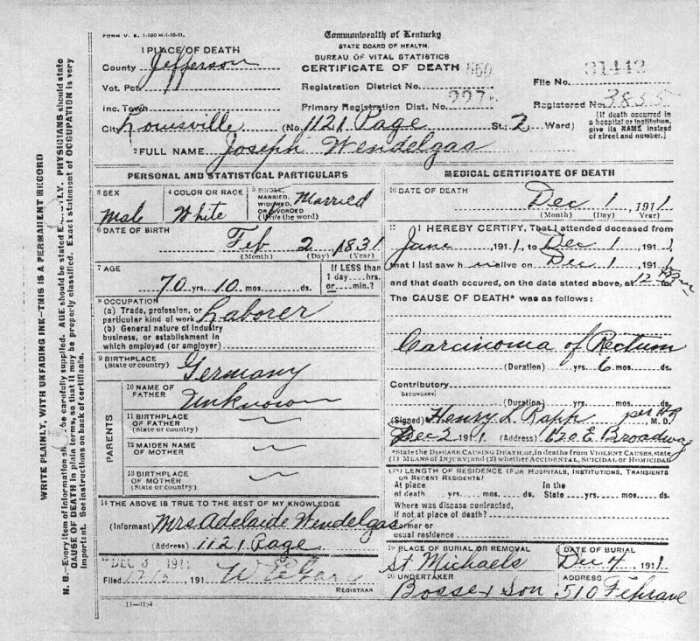 Commonwealth of Kentucky
STATE BOARD OF HEALTH.
BUREAU OF VITAL STATISTICS
CERTIFICATE OF DEATH
1 PLACE OF DEATH
County Jefferson
Vot. Pct.
Inc. Town
City Louisville (No. 1121 Page St. 2 Ward)
Registration District No.
Primary Registration Dist. No.
File No. 31442
Registered No. 3835
(If death occurred in a hospital or institution, give its NAME instead of street and number.)
2 FULL NAME Joseph Wendelgas
PERSONAL AND STATISTICAL PARTICULARS
3 SEX Male
4 COLOR OR RACE White
5 SINGLE, MARRIED, WIDOWED, OR DIVORCED (Write the word) Married
6 DATE OF BIRTH
Feb 2 1831
(Month) (Day) (Year)
7 AGE
70 yrs. 10 mos. ds.
If LESS than
1 day....hrs.
or.....min.?
8 OCCUPATION
(a) Trade, profession, or
particular kind of work Laborer
(b) General nature of industry
business, or establishment in
which employed (or employer)
9 BIRTHPLACE
(State or country) Germany
PARENTS
10 NAME OF
FATHER Unknown
11 BIRTHPLACE
OF FATHER
(State or country)
12 MAIDEN NAME
OF MOTHER
13 BIRTHPLACE
OF MOTHER
(State or country)
14 THE ABOVE IS TRUE TO THE BEST OF MY KNOWLEDGE
(Informant) Mrs Adelaide Wendelgas
(Address) 1121 Page
15
Filed 191
REGISTRAR
MEDICAL CERTIFICATE OF DEATH
16 DATE OF DEATH
Dec 1 1911
(Month) (Day) (Year)
17 I HEREBY CERTIFY, That I attended deceased from
June 1911, to Dec 1 1911
that I last saw h alive on Dec 1 191
and that death occurred, on the date stated above, at 12
The CAUSE OF DEATH* was as follows:
Carcinoma of Rectum
(Duration) yrs. 6 mos. ds.
Contributory
SECONDARY
(Duration) yrs. mos. ds.
(Signed) Henry L Rapp M. D.
Dec 2 1911 (Address) E. Broadway
*State the DISEASE CAUSING DEATH, or, in deaths from VIOLENT CAUSES, state
(1) MEANS OF INJURY; and (2) whether ACCIDENTAL, SUICIDAL or HOMICIDAL.
18 LENGTH OF RESIDENCE (FOR HOSPITALS, INSTITUTIONS, TRANSIENTS
OR RECENT RESIDENTS)
At place of death yrs. mos. ds. In the State yrs. mos. ds.
Where was disease contracted,
if not at place of death?
Former or
usual residence
19 PLACE OF BURIAL OR REMOVAL
St Michaels
DATE OF BURIAL
Dec 4 1911
20 UNDERTAKER
Bosse & Son
ADDRESS
510
WRITE PLAINLY, WITH UNFADING INK—THIS IS A PERMANENT RECORD
N. B.—Every item of information should be carefully supplied. AGE should be stated EXACTLY. PHYSICIANS should state
CAUSE OF DEATH in plain terms, so that it may be properly classified. Exact statement of OCCUPATION is very
important. See instructions on back of certificate.